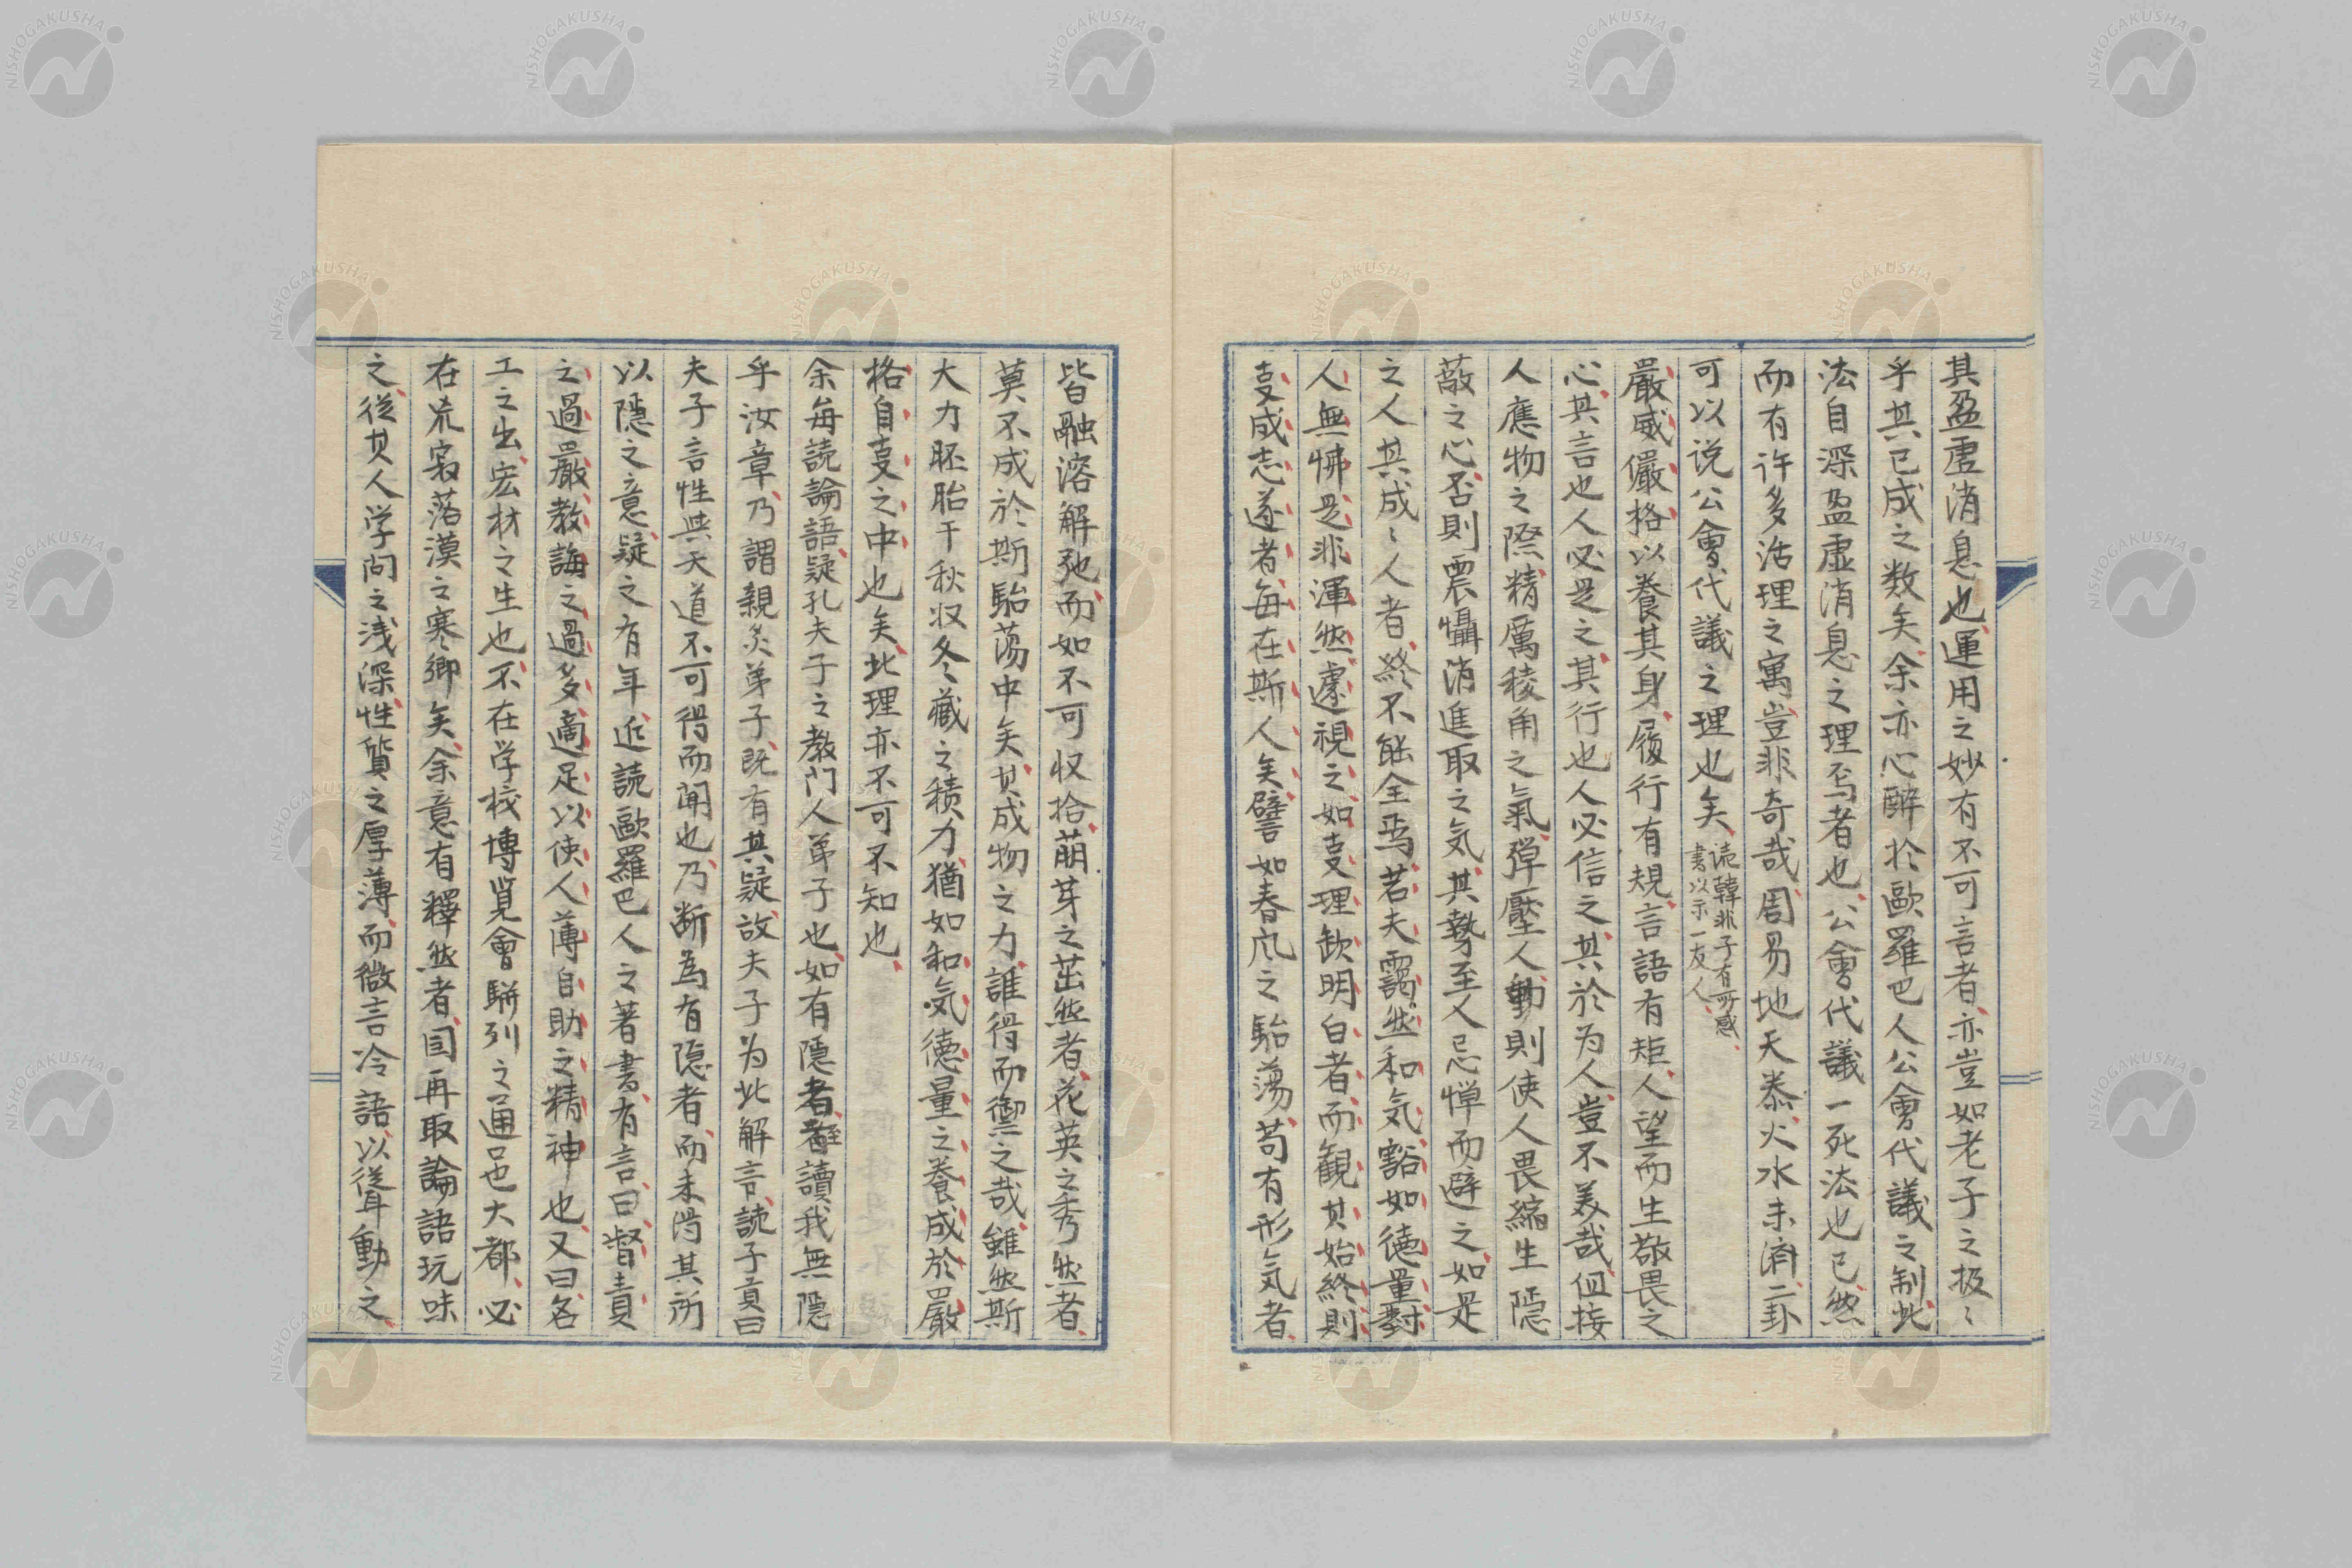 其盈虚消息也運用之妙有不可言者亦豈如老子之扱〻
乎其已成之数矣余亦心酔於歐羅巴人公會代議之制此
法自深盈虚消息之理焉者也公會代議一死法也已然
而有許多活理之寓豈非奇哉周易地天泰火水未済二卦
可以説公會代議之理也矣
読韓非子有所感
書以示一友人
嚴威儼格以養其身履行有規言語有矩人望而生敬畏之
心其言也人必是之其行也人必信之其於为人豈不美哉但接
人應物之際精厲稜角之氣弾壓人動則使人畏縮生隱
蔽之心否則震懾消進取之気其勢至人忌憚而避之如是
之人其成〻人者終不能全焉若夫靄然和気豁如德量對
人無怫是非渾然遽視之如支理欽明白者而観其始終則
支成志遂者每在斯人矣譬如春凨之駘蕩苟有形気者
皆融溶解弛而如不可収拾萠芽之茁然者花英之秀然者
莫不成於斯駘蕩中矣其成物之力誰得而禦之哉雖然斯
大力胚胎干秋収冬藏之積力猶如和気德量之養成於嚴
格自支之中也矣此理亦不可不知也
余每読論語疑孔夫子之教門人弟子也如有隱者雖讀我無隱
乎汝章乃謂親炙弟子既有其疑故夫子为此解言読子貢曰
夫子言性与天道不可得而聞也乃断為有隠者而未得其所
以隱之意疑之有年近読歐羅巴人之著書有言曰督責
之過嚴教誨之過多適足以使人薄自助之精神也又曰名
工之出宏材之生也不在学校博覧會駢列之通邑大都必
在荒寂落漠之寒郷矣余意有釋然者因再取論語玩味
之從其人学问之浅深性質之厚薄而微言冷語以聳動之
NISHOGAKUSHA